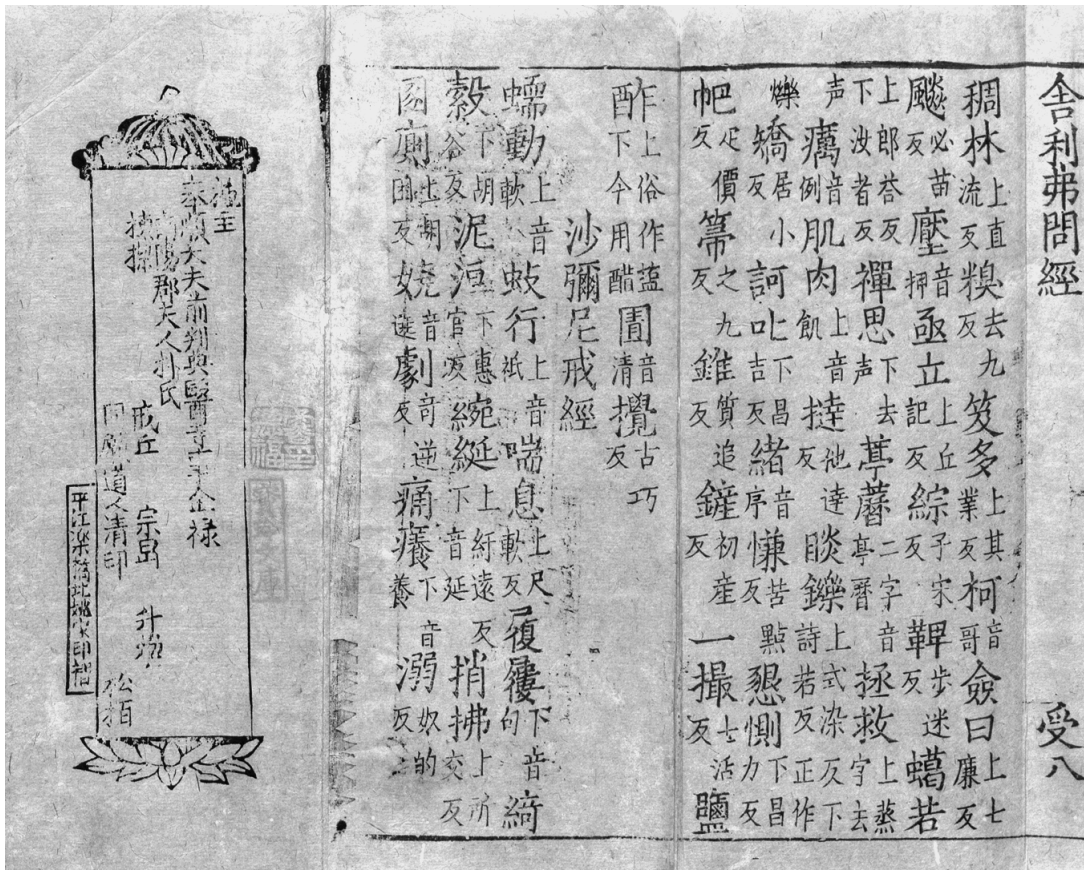 舎利弗問經 受八
稠林上直流反糗去九反笈多上其業反柯音哥僉曰上七廉反
飈必苗反壓音押亟立上丘記反綜子宋反鞞步迷反蠍若
上郎荅反下汝者反禪思下去声葶藶二字音亭曆拯救上蒸字去
声癘音例肌肉上音飢撻他達反睒鑠上式染反下詩若反正作
爍矯居小反訶叱下昌吉反緒音序慊苦點反懇惻下昌力反
帊疋價反箒之九反錐質追反鏟初産反一撮七活反鹽
酢上俗作䀋下今用醋圊音清攪古巧反
沙彌尼戒經
蠕動上音軟蚑行上音祇喘息上尺軟反履屨下音句綺
縠下胡谷反泥洹下惠官反綩綖上紆遠反下音延捎拂上所交反
圂廁上胡困反嬈音遶劇奇逆反痛癢下音養溺奴的反
施主
奉順大夫前判典醫寺事金祿
郡夫人朴氏
戒丘 宗
同願道人清印 松栢
平江 橋北姚家印